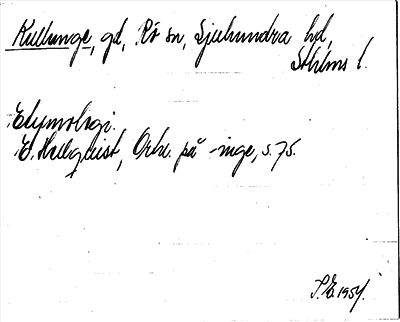 Kullunge, gd, Rö sn, Sjuhundra hd,
Sthlms l.
Etymologi.
E. Hellquist, Ortn. på -inge, s. 75.
1954.